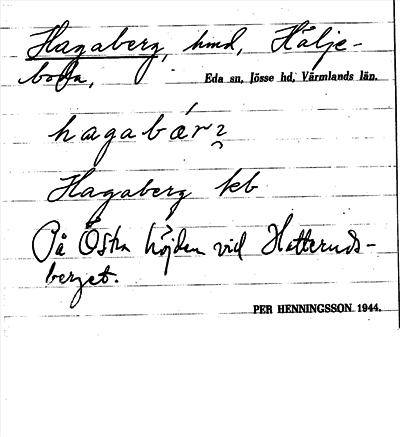 Hagaberg, hmd, Hälje-
boda,
Eda sn, Jösse hd, Värmlands län.
hagabárꝛ̣
Hagaberg kb
På Östra höjden vid Hatteruds-
berget.
PER HENNINGSSON 1944.